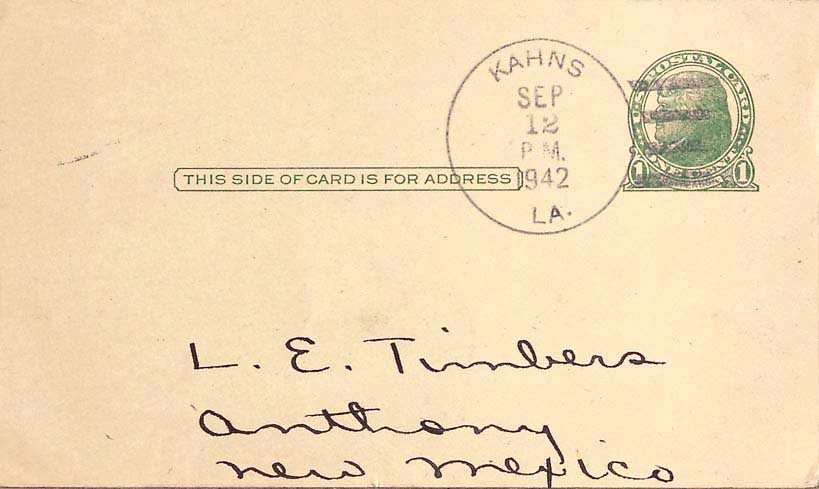 KAHNS
SEP
12
P.M.
1942
LA.
U.S. POSTAL CARD
1 1
THIS SIDE OF CARD IS FOR ADDRESS
L. E. Timbers
Anthony
New Mexico